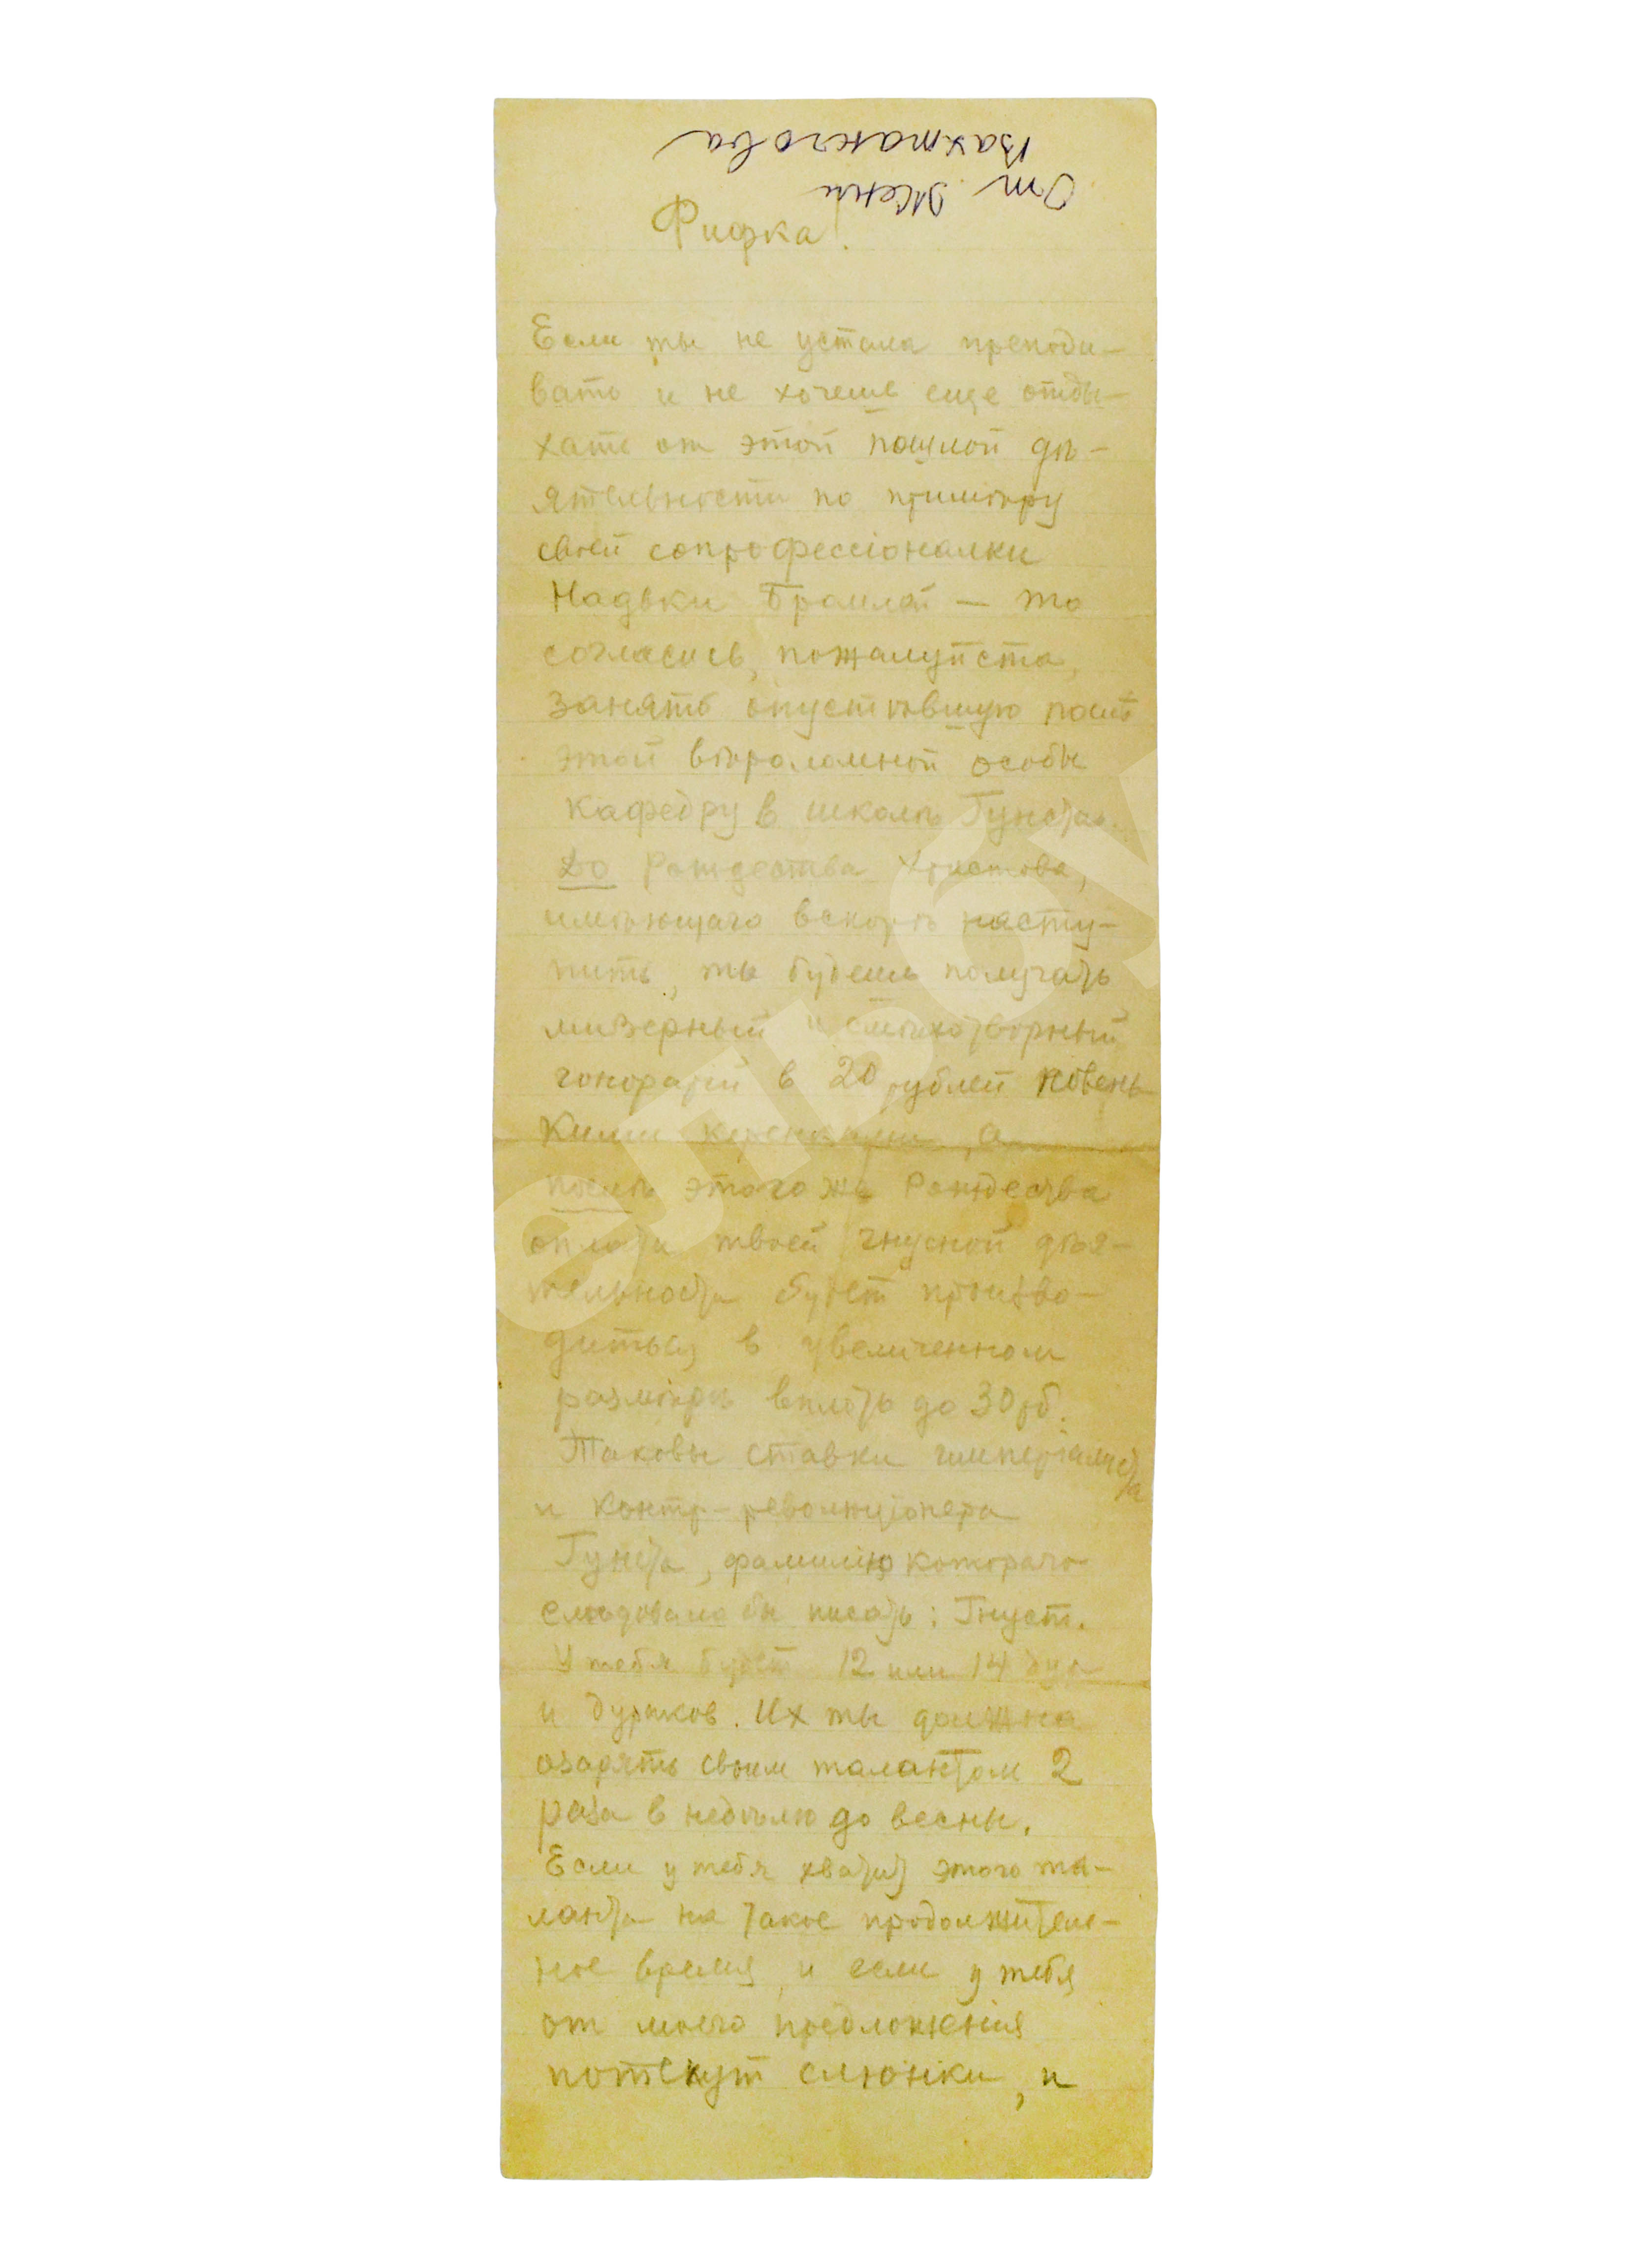 От Жени
Вахтангова
Фифка!
Если ты не устала преподы-
вать и не хочешь еще отды-
хать от этой пошлой дѣ-
ятельности по примѣру
своей сопрофессіоналки
Надьки Брамлей — то
согласись, пожалуйста,
занять опустѣвшую послѣ
этой вѣроломной особы
кафедру в школѣ Гунста.
До Рождества Христова,
имѣющаго вскорѣ насту-
пить, ты будешь получать
мизерный и смѣхотворный
гонорарій в 20 рублей новень-
кими керенками, а
послѣ этого же Рождества
оплата твоей гнусной дѣя-
тельности будет произво-
диться в увеличенном
размѣрѣ вплоть до 30 рб.
Таковы ставки имперіалиста
и контр-революціонера
Гунста, фамилію котораго
слѣдовало бы писать: Гнуст.
У тебя будет 12 или 14 дур
и дураков. Их ты должна
озарять своим талантом 2
раза в недѣлю до весны.
Если у тебя хватит этого та-
ланта на такое продолжитель-
ное время и если у тебя
от моего предложенія
потекут слюнки, и
ельбо